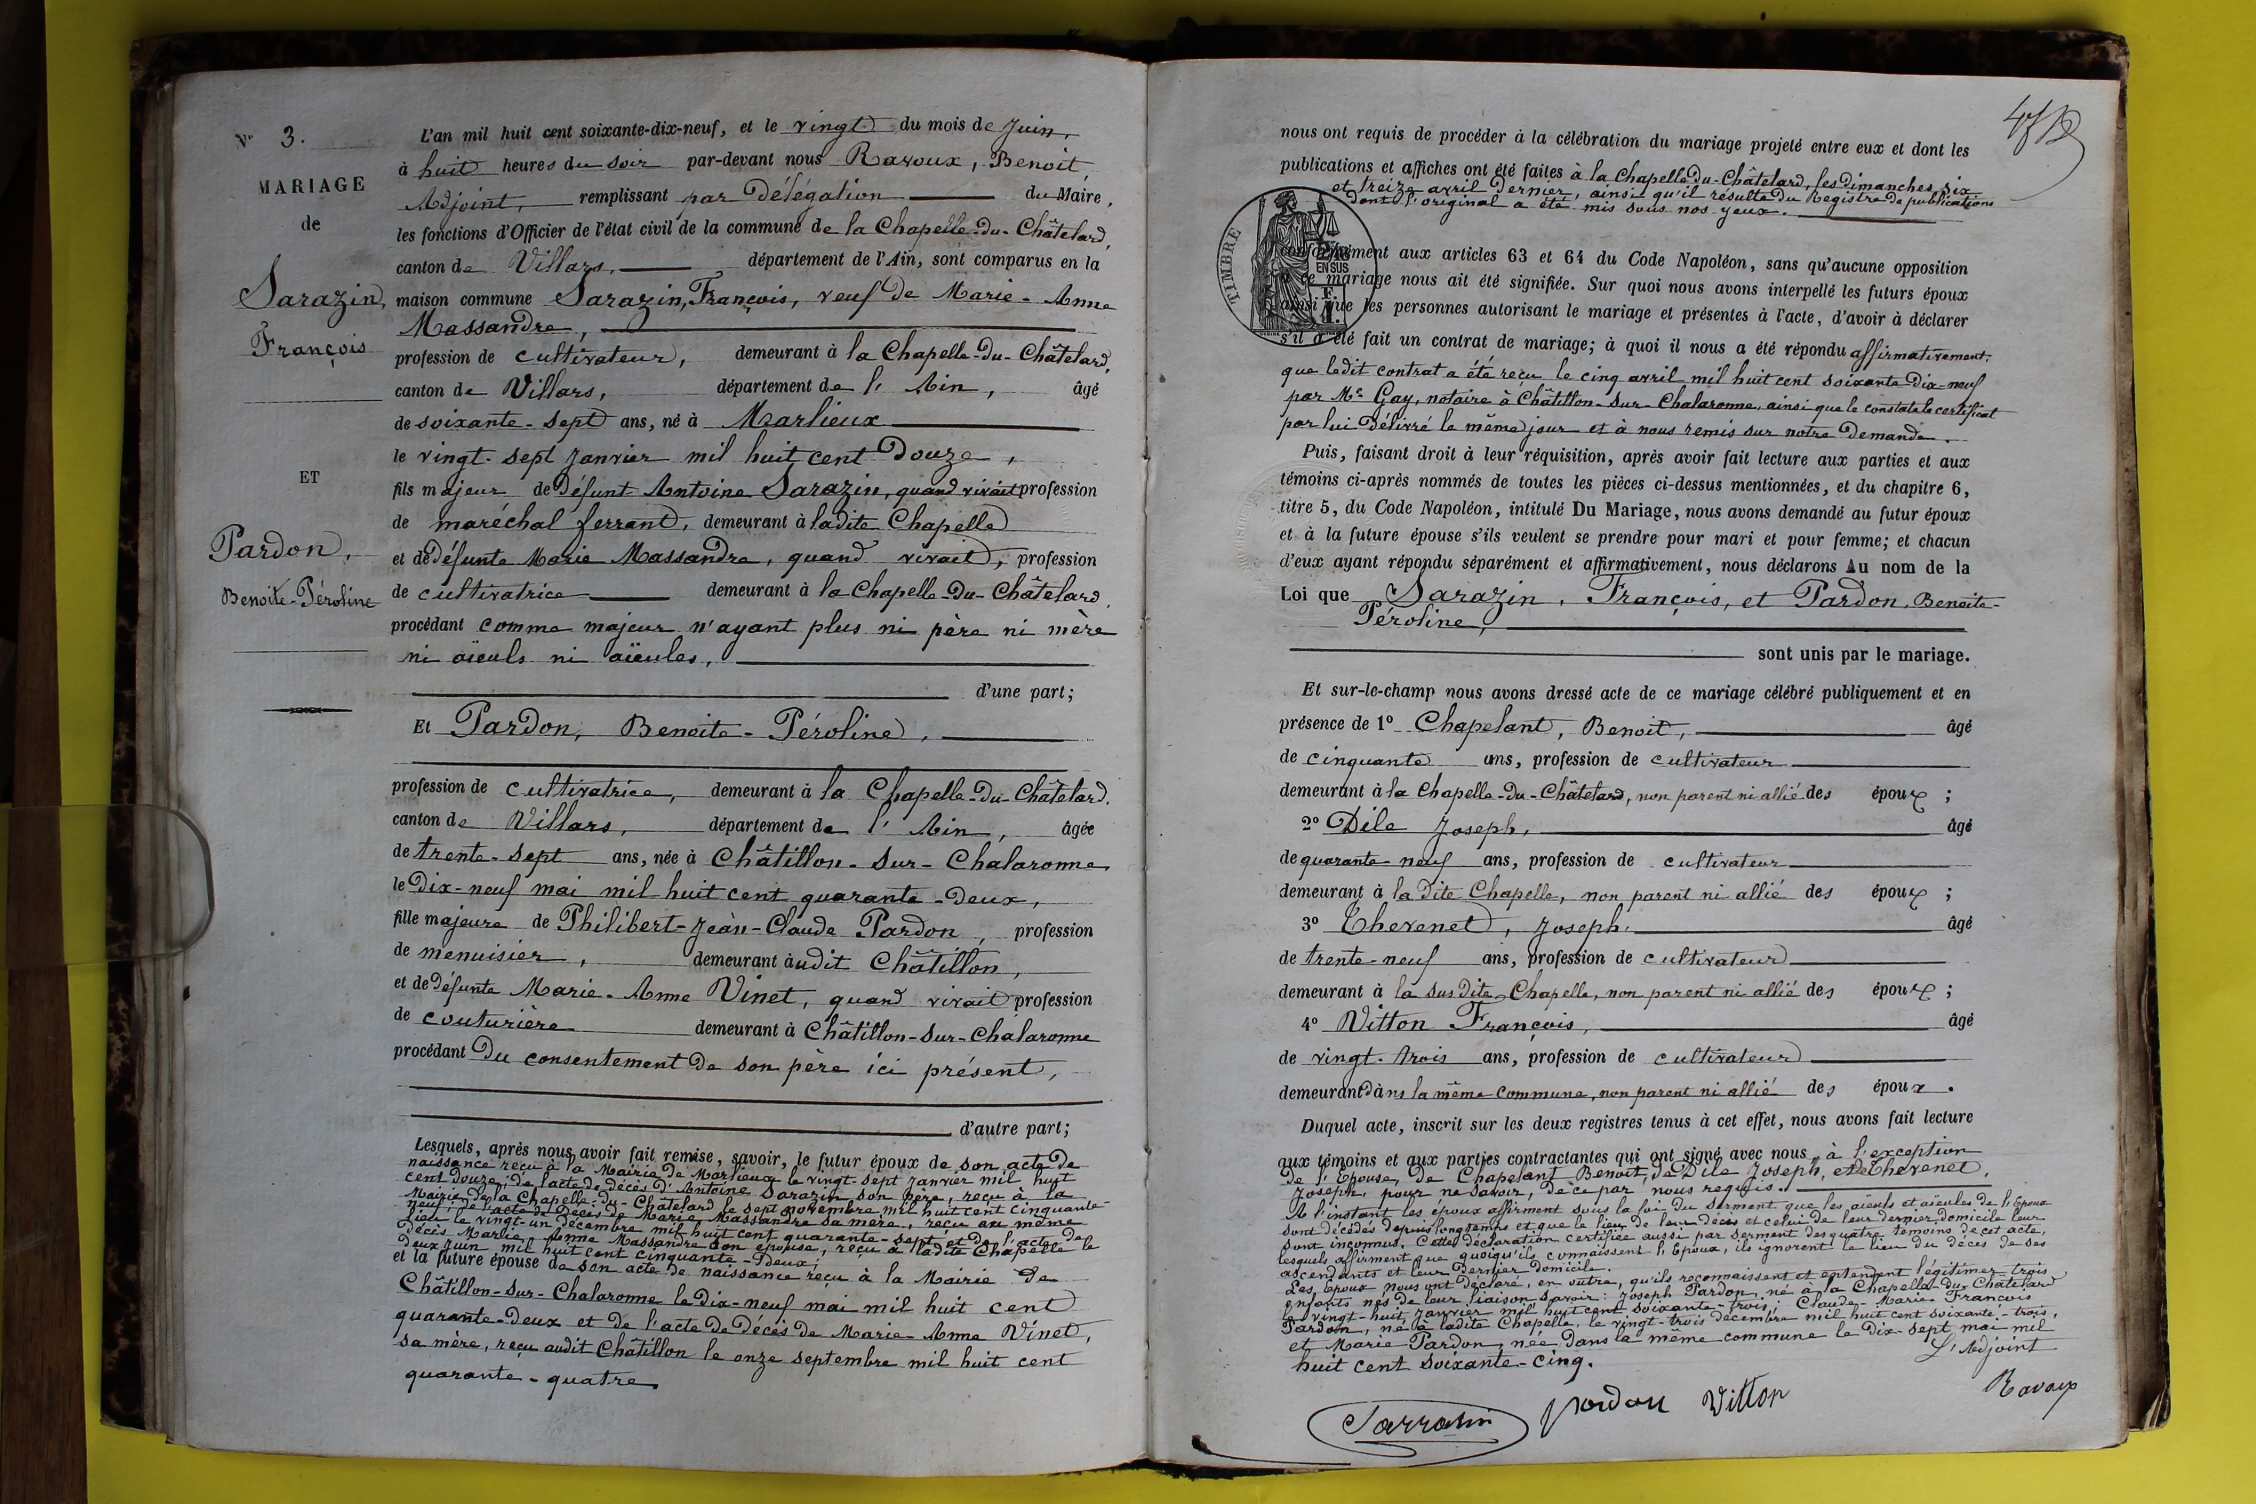 Nº 3.
MARIAGE
de
Sarazin,
François
ET
Pardon,
Benoite-Péroline
L'an mil huit cent soixante-dix-neuf, et le vingt du mois de Juin,
à huit heures du soir par-devant nous Ravoux, Benoit,
Adjoint, remplissant par Délégation du Maire,
les fonctions d'Officier de l'état civil de la commune de la Chapelle-du-Châtelard,
canton de Villars, département de l'Ain, sont comparus en la
maison commune Sarazin, François, veuf de Marie-Anne
Massandre,
profession de cultivateur, demeurant à la Chapelle-du-Châtelard,
canton de Villars, département de l'Ain, âgé
de soixante-sept ans, né à Marlieux
le vingt-sept Janvier mil huit cent Douze,
fils majeur de Défunt Antoine Sarazin, quand vivait profession
de maréchal ferrant, demeurant à ladite Chapelle
et de Défunte Marie Massandre, quand vivait, profession
de cultivatrice demeurant à la Chapelle-du-Châtelard,
procédant comme majeur n'ayant plus ni père ni mère
ni aïeuls ni aïeules,
d'une part;
Et Pardon, Benoite-Péroline,
profession de cultivatrice, demeurant à la Chapelle-du-Châtelard,
canton de Villars, département de l'Ain, âgée
de trente-sept ans, née à Châtillon-sur-Chalaronne
le Dix-neuf mai mil huit cent quarante-deux,
fille majeure de Philibert-Jean-Claude Pardon, profession
de menuisier, demeurant audit Châtillon,
et de Défunte Marie-Anne Vinet, quand vivait profession
de couturière demeurant à Châtillon-sur-Chalaronne
procédant Du consentement de son père ici présent,
d'autre part;
Lesquels, après nous avoir fait remise, savoir, le futur époux de son acte de
naissance reçu à la Mairie de Marlieux le vingt-sept Janvier mil huit
cent Douze; de l'acte de décès d'Antoine Sarazin son père, reçu à la
Mairie de la Chapelle-du-Châtelard le sept novembre mil huit cent cinquante
neuf; de l'acte de Décès de Marie Massandre sa mère, reçu au même
lieu le vingt-un décembre mil huit cent quarante-sept et de l'acte de
décès Marie-Anne Massandre son épouse, reçu à ladite Chapelle le
deux Juin mil huit cent cinquante-deux;
et la future épouse de son acte de naissance reçu à la Mairie de
Châtillon-sur-Chalaronne le Dix-neuf mai mil huit cent
quarante-deux et de l'acte de Décès de Marie-Anne Vinet,
sa mère, reçu audit Châtillon le onze septembre mil huit cent
quarante-quatre
nous ont requis de procéder à la célébration du mariage projeté entre eux et dont les
publications et affiches ont été faites à la Chapelle du-Châtelard, les Dimanches six
et treize avril Dernier, ainsi qu'il résulte du Registre de publications
dont l'original a été mis sous nos yeux.
TIMBRE
EN SUS
conformément aux articles 63 et 64 du Code Napoléon, sans qu'aucune opposition
à ce mariage nous ait été signifiée. Sur quoi nous avons interpellé les futurs époux
ainsi que les personnes autorisant le mariage et présentes à l'acte, d'avoir à déclarer
s'il a été fait un contrat de mariage; à quoi il nous a été répondu affirmativement,
que ledit contrat a été reçu le cinq avril mil huit cent soixante Dix-neuf
par Me Gay, notaire à Châtillon-sur-Chalaronne, ainsi que le constate le certificat
par lui Délivré le même jour et à nous remis sur notre Demande.
Puis, faisant droit à leur réquisition, après avoir fait lecture aux parties et aux
témoins ci-après nommés de toutes les pièces ci-dessus mentionnées, et du chapitre 6,
titre 5, du Code Napoléon, intitulé Du Mariage, nous avons demandé au futur époux
et à la future épouse s'ils veulent se prendre pour mari et pour femme; et chacun
d'eux ayant répondu séparément et affirmativement, nous déclarons Au nom de la
Loi que Sarazin, François, et Pardon, Benoite-
Péroline,
sont unis par le mariage.
Et sur-le-champ nous avons dressé acte de ce mariage célébré publiquement et en
présence de 1º Chapelant, Benoit, âgé
de cinquante ans, profession de cultivateur
demeurant à la Chapelle-du-Châtelard, non parent ni allié des époux;
2º Dile Joseph, âgé
de quarante-neuf ans, profession de cultivateur
demeurant à la Dite Chapelle, non parent ni allié des époux;
3º Thevenet, Joseph, âgé
de trente-neuf ans, profession de cultivateur
demeurant à la sus Dite Chapelle, non parent ni allié des époux;
4º Vitton François, âgé
de vingt-trois ans, profession de cultivateur
demeurant dans la même commune, non parent ni allié des époux.
Duquel acte, inscrit sur les deux registres tenus à cet effet, nous avons fait lecture
aux témoins et aux parties contractantes qui ont signé avec nous à l'exception
de l'Epouse, de Chapelant Benoit, de Dile Joseph, et de Thevenet
Joseph, pour ne savoir, de ce par nous requis.
A l'instant les époux affirment sous la foi du serment que les aïeuls et aïeules de l'époux
sont décédés depuis longtemps et que le lieu de leur décès et celui de leur dernier domicile leur
sont inconnus. Cette déclaration certifiée aussi par serment des quatre témoins de cet acte,
lesquels affirment que quoiqu'ils connaissent l'Epoux, ils ignorent le lieu du décès de ses
ascendants et leur Dernier Domicile.
Les Epoux nous ont Déclaré, en outre, qu'ils reconnaissent et entendent légitimer trois
enfants nés de leur liaison savoir: Joseph Pardon, né à la Chapelle-du-Châtelard
le vingt-huit Janvier mil huit cent soixante-trois; Claude-Marie-François
Pardon, né à ladite Chapelle, le vingt-trois décembre mil huit cent soixante-trois,
et Marie Pardon, née Dans la même commune le Dix-sept mai mil
huit cent soixante-cinq.
L'Adjoint
Sarrasin Pardon Vitton Ravoux